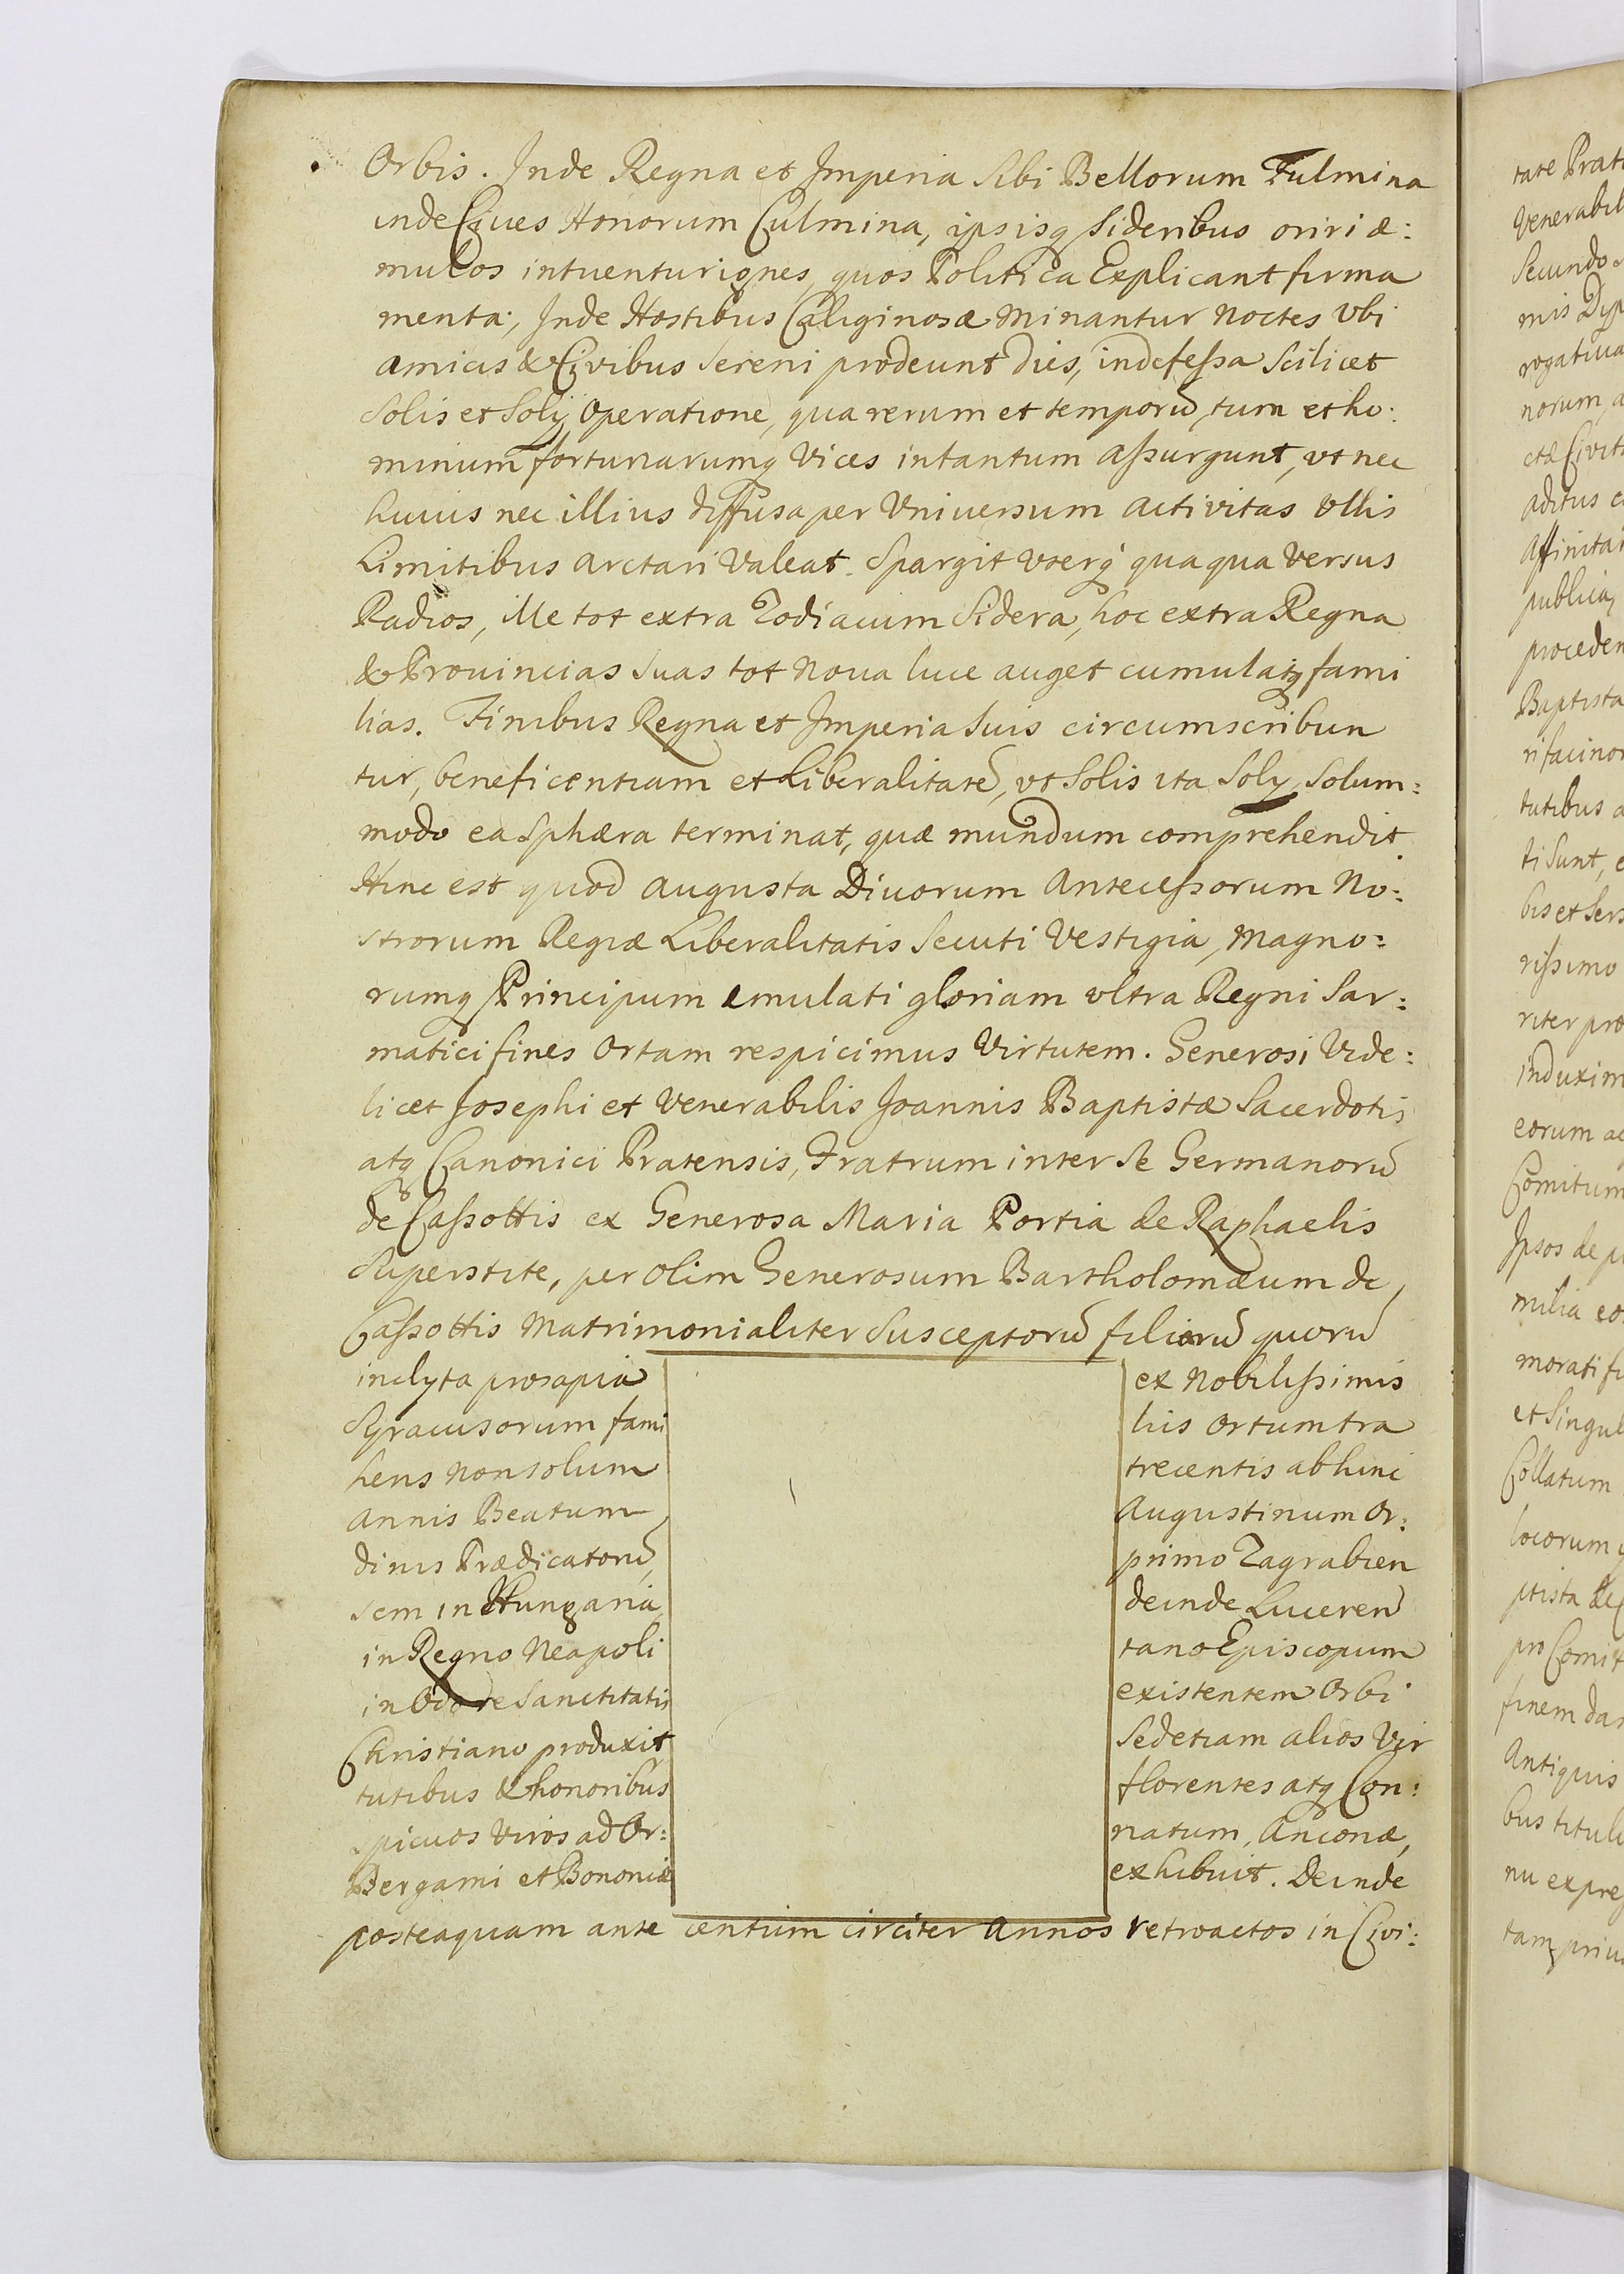 Orbis. Inde Regna et Imperia sibi Bellorum Fulmina
inde Ciues Honorum Culmina, ipsisq sideribus oriri æ:
mulos intuentur ignes, quos Politica Explicant firma
menta, Inde Hostibus Caliginosæ minantur noctes Vbi
amicis & Civibus sereni prodeunt dies, indefessa scilicet
Solis et Solij Operatione, qua rerum et temporũ, tum et ho:
minum fortunarumq Vices intantum assurgunt, vt nec
huius nec illius diffusa per Vniuersum activitas Vllis
Limitibus arctari Valeat. Spargit Vterq quaqua Versus
Radios, ille tot extra Zodiacum Sidera, hoc extra Regna
& Prouincias suas tot noua luce auget cumulatq fami
lias. Finibus Regna et Imperia suis circumscribun
tur, beneficentiam et Liberalitatẽ, vt Solis ita Solij solum:
modo ea sphæra terminat, quæ mundum comprehendit
Hinc est quod augusta Diuorum Antecessorum No:
strorum Regiæ Liberalitatis secuti Vestigia, magno:
rumq Principum emulati gloriam vltra Regni Sar:
matici fines ortam respicimus Virtutem. Generosi Vide:
licet Josephi et Venerabilis Joannis Baptistæ Sacerdotis
atq Canonici Pratensis, Fratrum inter se Germanorũ
de Cassottis ex Generosa Maria Portia de Raphaelis
Superstite, per olim Generosum Bartholomæum de
Cassottis Matrimonialiter susceptorũ filiorũ quorũ
inclyta prosapia ex Nobilissimis
Syracusorum fami liis Ortum tra
hens non solum trecentis abhinc
annis Beatum Augustinum Or:
dinis Prædicatorũ, primo Zagrabien
sem in Hungaria deinde Luceren
in Regno Neapoli tano Episcopum
in Odore sanctitatis existentem Orbi
Christiano produxit sed etiam alios Vir
tutibus & honoribus florentes atq Con:
spicuos viros ad Or: natum, Anconæ,
Bergami et Bononiæ exhibuit. Deinde
posteaquam ante centum circiter annos retroactos in Civi:
tate Prat
Venerabil
Secundo
mis Dyp
rogatiua
norum, a
etæ Civit
aditus e
affinitat
publica,
proceden
Baptista
ri facinor
tutibus a
ti Sunt, e
bis et Ser
rissimo
riter pro
induxim
eorum ac
Comitum
Ipsos de p
milia eo
morati fu
et singul
Collatum
locorum
ptista de
pro Comit
finem dar
Antiquis
bus titul
nu expre
tam priu